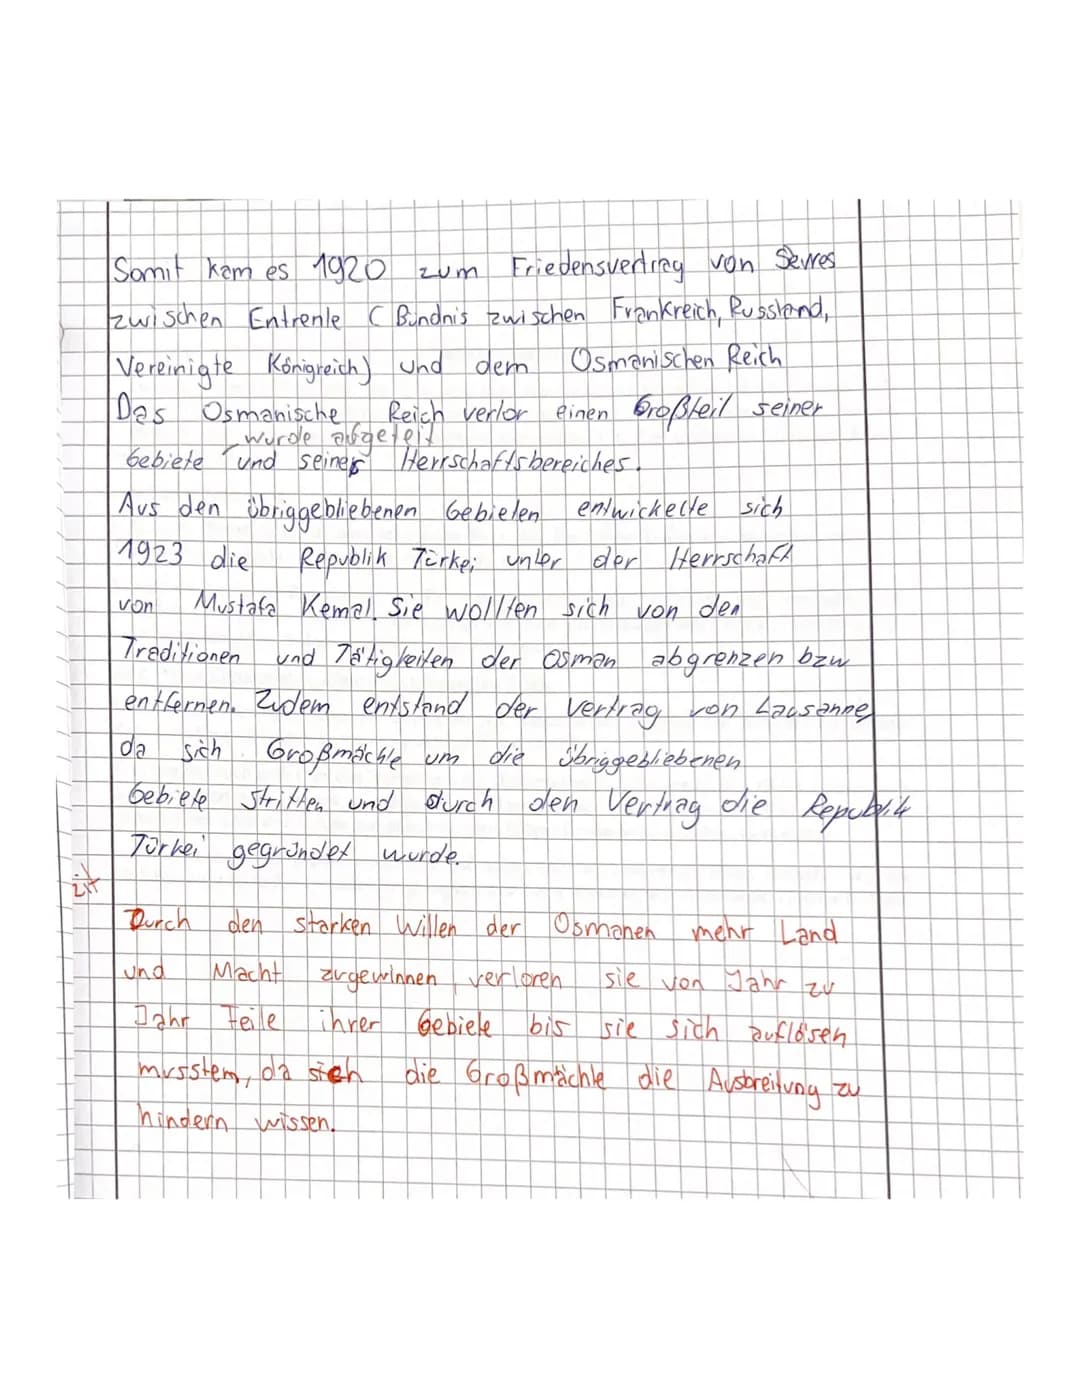 Somit kam es 1920 zum Friedensvertrag von Sevres
zwischen Entrenle (Bündnis zwischen Frankreich, Russland,
Vereinigte Königreich) und dem Osmanischen Reich
Das Osmanische Reich verlor einen Großteil seiner
wurde abgeteilt
Gebiete und seines Herrschaftsbereiches.
Aus den übriggebliebenen Gebieten entwickelte sich
1923 die Republik Türkei unter der Herrschaft
von Mustafa Kemal. Sie wollten sich von den
Traditionen und Tätigkeiten der Osman abgrenzen bzw
entfernen. Zudem entstand der Vertrag von Lausanne
da sich Großmächte um die übriggebliebenen
Gebiete stritten und durch den Vertrag die Republik
Türkei gegründet wurde.
Durch den starken Willen der Osmanen mehr Land
und Macht zugewinnen, verloren sie von Jahr zu
Jahr Teile ihrer Gebiete bis sie sich auflösen
mussten, da sich die Großmächte die Ausbreitung zu
hindern wissen.